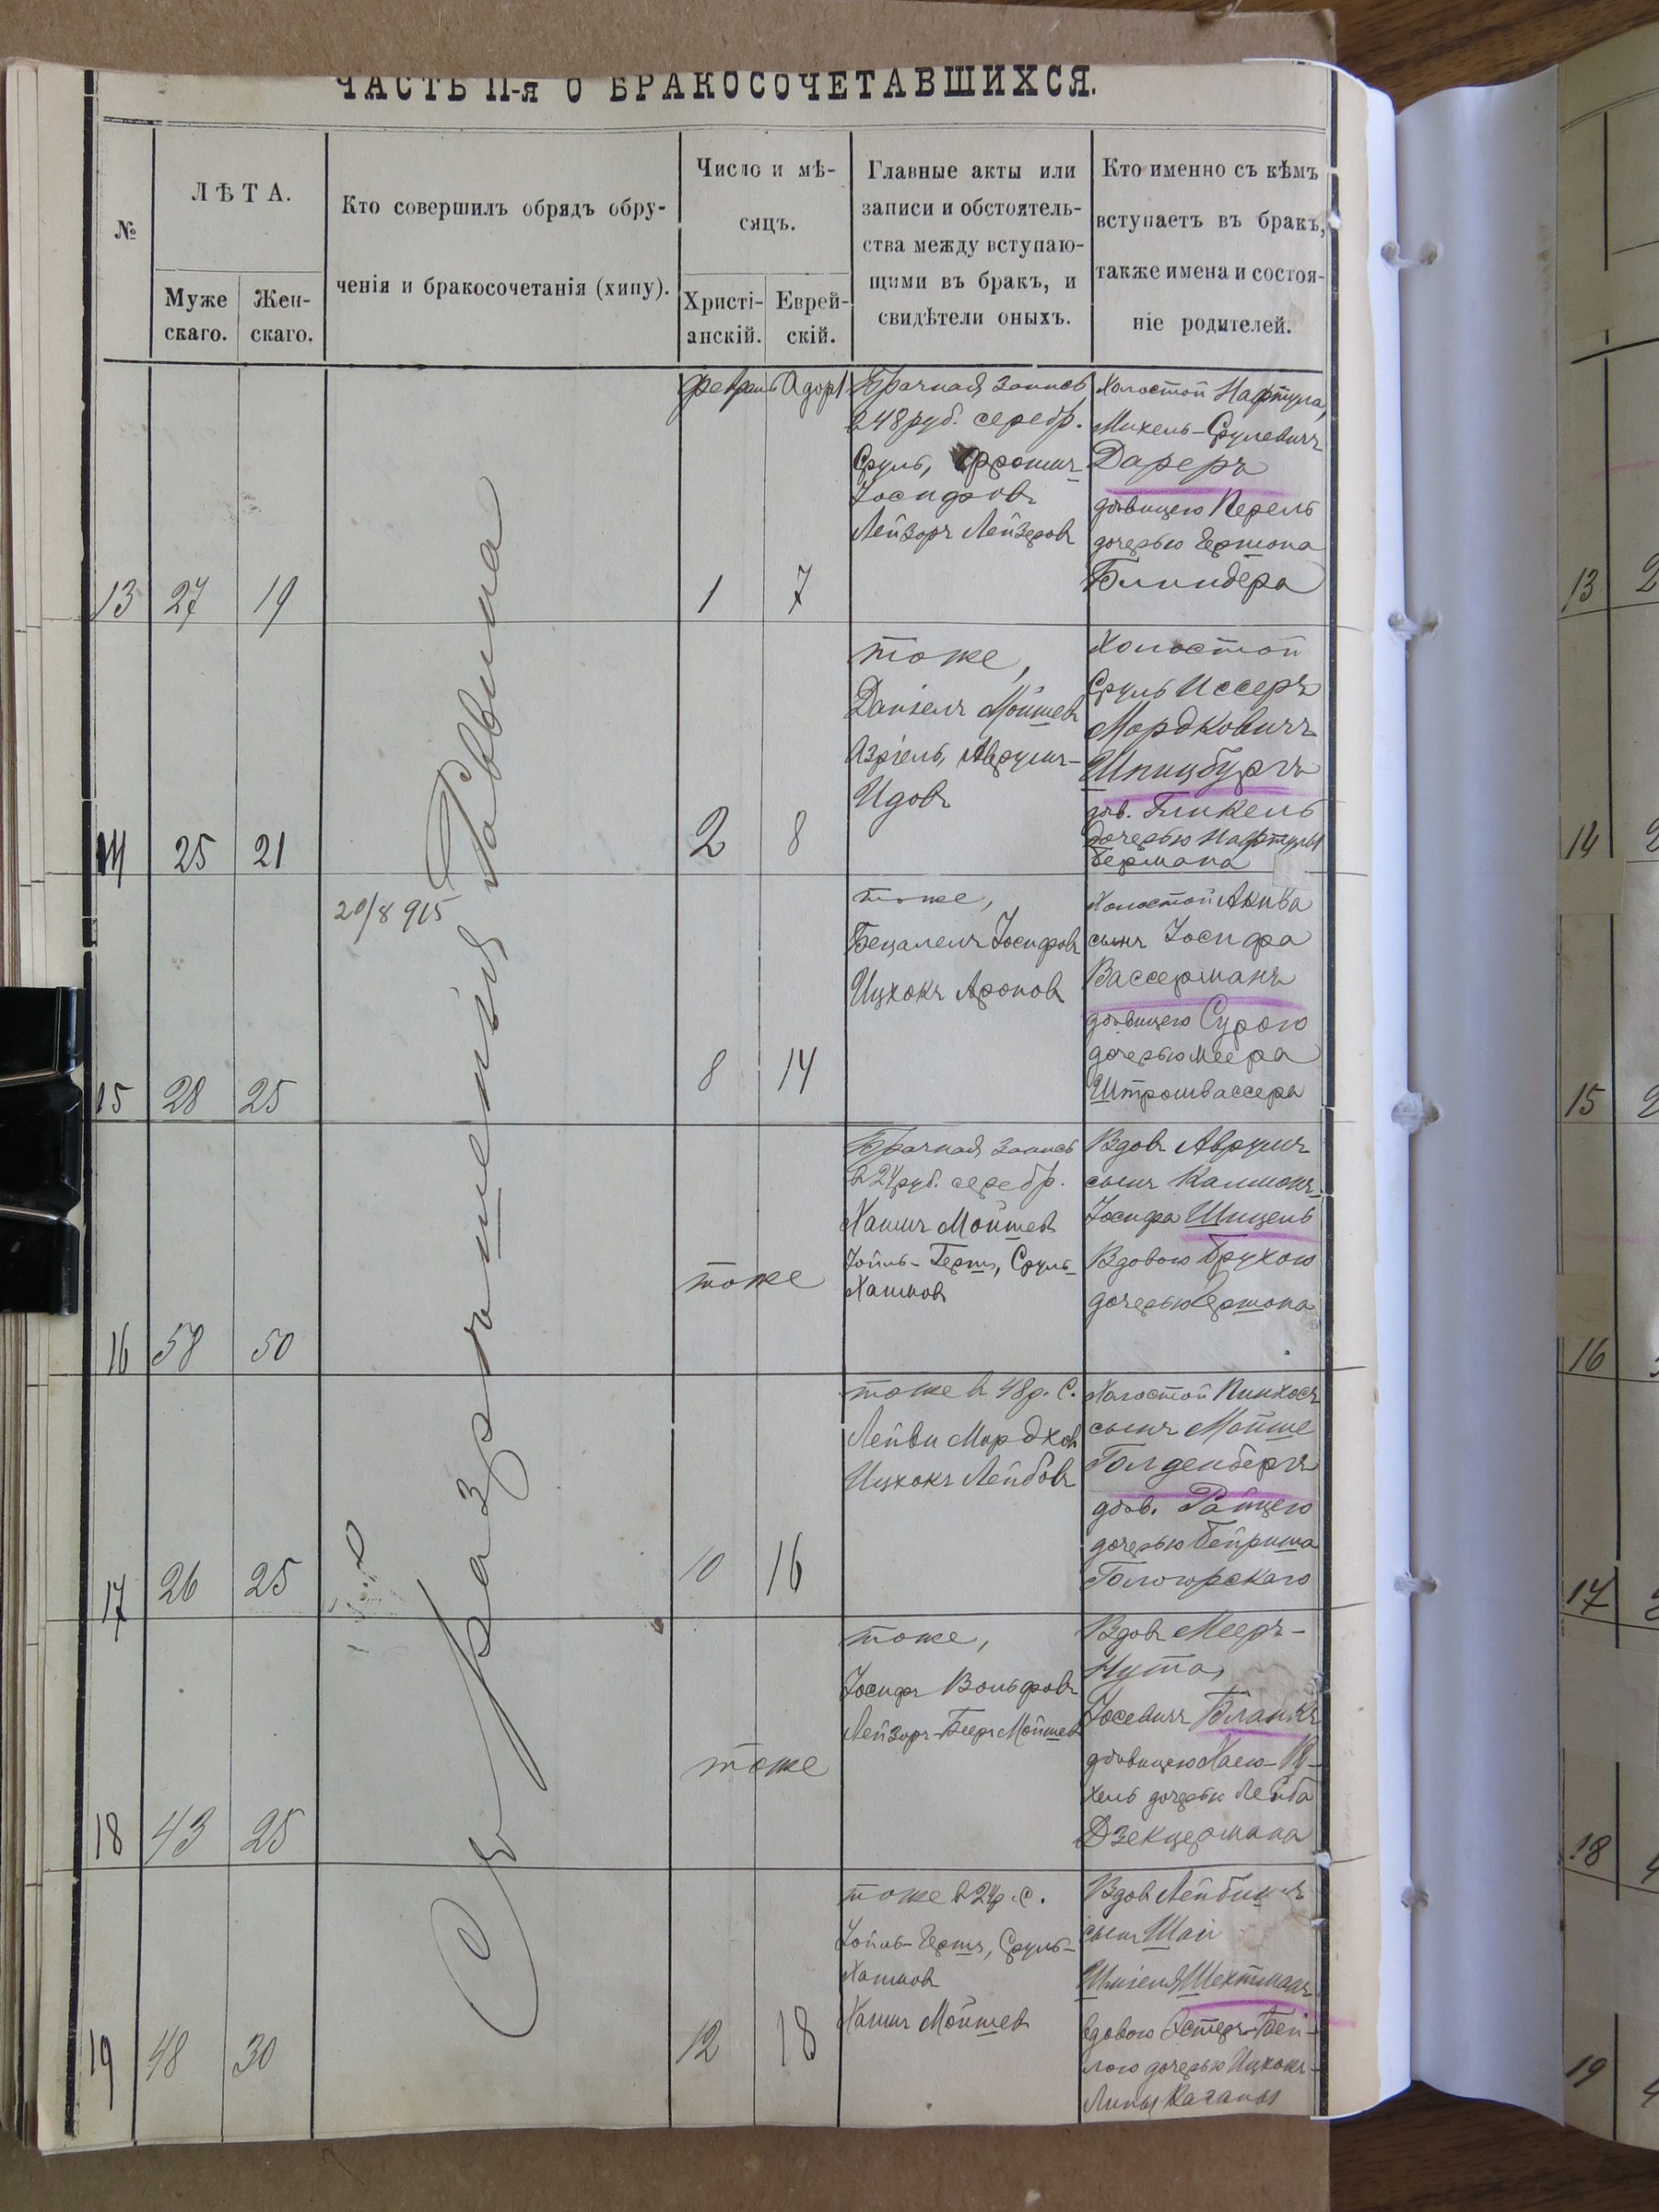 ЧАСТЬ II-я О БРАКОСОЧЕТАВШИХСЯ.
№
ЛѢТА.
Муже
скаго.
Жен-
скаго.
Кто совершилъ обрядъ обру-
ченія и бракосочетанія (хипу).
Число и мѣ-
сяцъ.
Христі-
анскій.
Еврей-
скій.
Главные акты или
записи и обстоятель-
ства между вступаю-
щими въ бракъ, и
свидѣтели оныхъ.
Кто именно съ кѣмъ
вступаетъ въ бракъ,
также имена и состоя-
ніе родителей.
Съ разрѣшенія Раввина
20/8 915
13
27
19
февраль
1
Адаръ
7
Брачная запись
в 48 руб. серебр.
Сруль,
Іосифовъ
Лейзоръ Лейзеровъ
Холостой Нафтула,
Михель-Срулевичъ
Дареръ
дѣвицею Перель
дочерью Гершона
Блиндера
14
25
21
2
8
тоже,
Даніелъ Мойшев
Азріель, Аврумъ-
Идовъ
Холостой
Сруль Иссеръ
Мордковичъ
Шпицбургъ
дѣв. Гликель
дочерью Нафтулы
Бермана
15
28
25
8
14
тоже,
Бецалелъ Іосифовъ
Ицхокъ Ароновъ
Холостой Акива
сынъ Іосифа
Вассерманъ
дѣвицею Сурою
дочерью Меера
Штромвассера
16
58
50
тоже
Брачная запись
в 24 руб. серебр.
Хаимъ Мойшев
Іойль-Герш, Сруль-
Хаимов
Вдовъ Аврумъ
сынъ Калмонъ-
Іосифа Шицель
Вдовою Брухою
дочерью Гершона
17
26
25
10
16
тоже в 48 р. С.
Лейви Мордхов
Ицхокъ Лейбовъ
Холостой Пинхосъ
сынъ Мойше
Голденбергъ
дѣв. Райцею
дочерью Бейриша
Гологорскаго
18
43
25
тоже
тоже,
Іосифъ Вольфовъ
Лейзоръ-Беръ Мойшев
Вдовъ Мееръ-
Нута,
Іосевичъ Бланкъ
дѣвицею Хаею-Ру-
хель дочерью Лейба
Дзекцермана
19
48
30
12
18
тоже в 24 р. С.
Іойль-Гершъ, Сруль-
Хаимов
Хаимъ Мойшев
Вдовъ
сынъ Шаи
Шехтманъ
вдовою Эстеръ-Бей-
лою дочерью Ицхокъ-
Липы Каганы
13
14
15
16
17
18
19